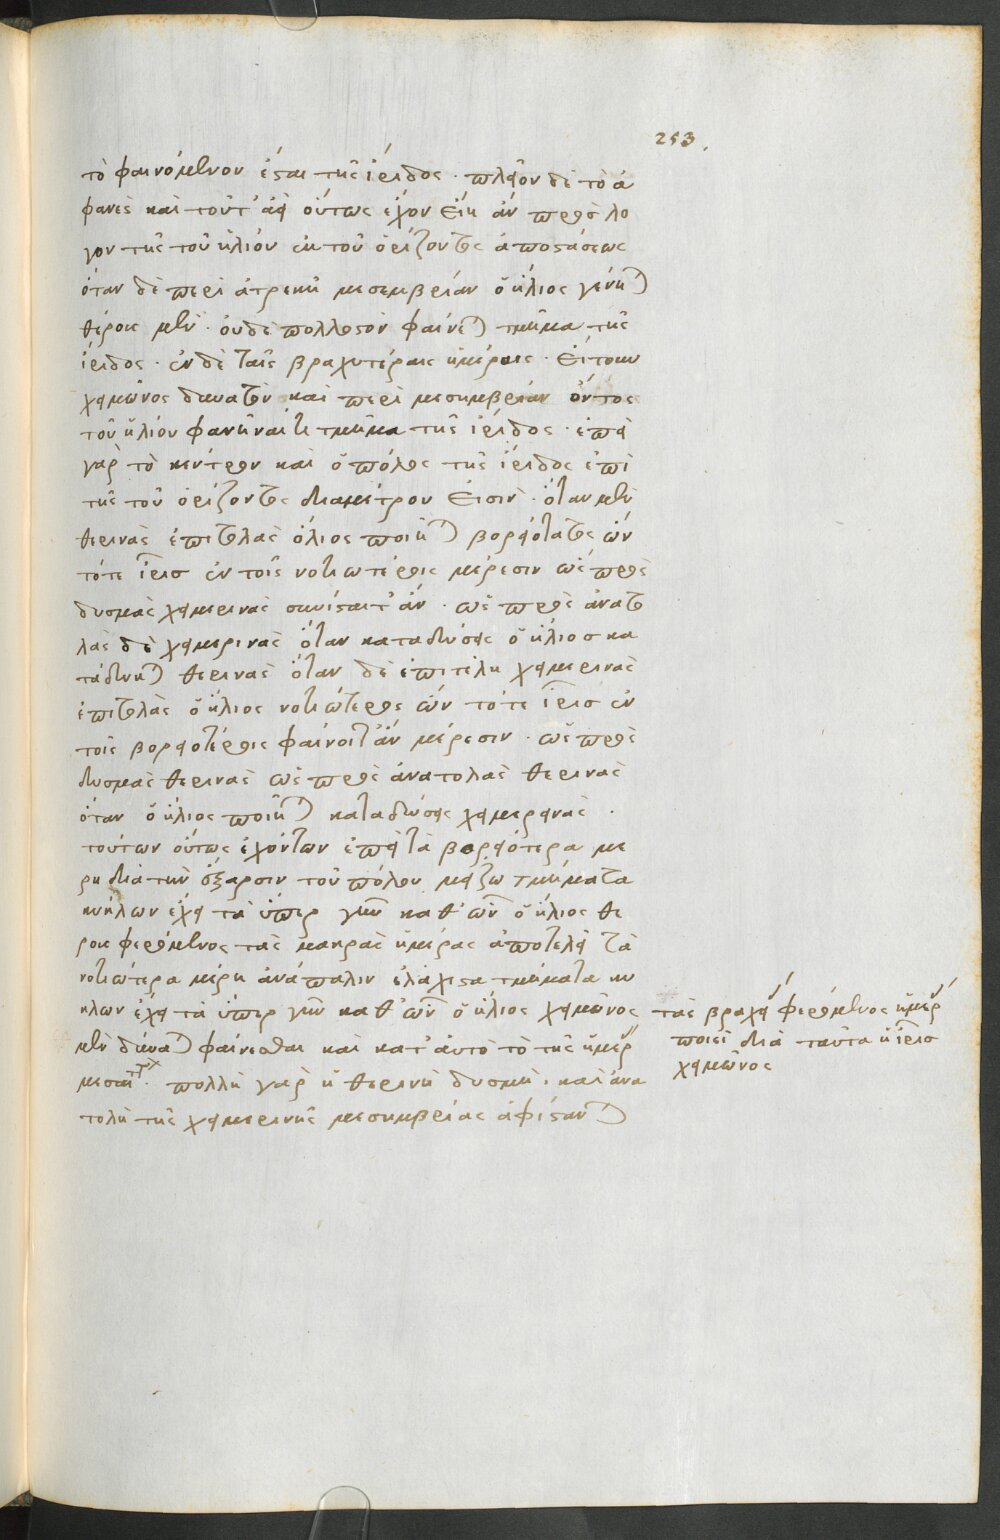 253.
τὸ φαινόμενον ἔσται τῆς ἴριδος · πλεῖον δὲ τὸ ἀ
φανὲς καὶ τοῦτ' ἀεὶ οὕτως ἔχον εἴη ἂν πρὸς λό
γον τῆς τοῦ ἡλίου ἐκ τοῦ ὁρίζοντος ἀποστάσεως
ὅταν δὲ περὶ ἀτρεκῆ μεσεμβρίαν ὁ ἥλιος γένηται
θέρους μὲν · οὐδὲ πολλοστὸν φαίνεται τμῆμα τῆς
ἴριδος · ἐν δὲ ταῖς βραχυτέραις ἡμέραις · εἴτουν
χειμῶνος δυνατὸν καὶ περὶ μεσημβρίαν ὄντος
τοῦ ἡλίου φανῆναί τι τμῆμα τῆς ἴριδος · ἐπεὶ
γὰρ τὸ κέντρον καὶ ὁ πόλος τῆς ἴριδος ἐπὶ
τῆς τοῦ ὁρίζοντος διαμέτρου εἰσὶν · ὅταν μὲν
θερινὰς ἐπιτολὰς ὁ ἥλιος ποιῆται βορειότατος ὢν
τότε ἶρισ ἐν τοῖς νοτιωτέροις μέρεσιν ὡς πρὸς
δυσμὰς χειμερινὰς συνίσταιτ' ἂν · ὡς πρὸς ἀνατο
λὰς δὲ χειμερινὰς ὅταν καταδύσεις ὁ ἥλιοσ κα
ταδύηται θερινὰς ὅταν δὲ ἐπιτέλη χειμερινὰς
ἐπιτολὰς ὁ ἥλιος νοτιώτερος ὢν τότε ἶρισ ἐν
τοῖς βορειοτέροις φαίνοιτ' ἂν μέρεσιν · ὡς πρὸς
δυσμὰς θερινὰς ὡς πρὸς ἀνατολὰς θερινὰς
ὅταν ὁ ἥλιος ποιῆται καταδύσεις χειμερινὰς ·
τούτων οὕτως ἐχόντων ἐπεὶ τὰ βορειότερα μέ
ρη διὰ τὴν ἔξαρσιν τοῦ πόλου μείζω τμήματα
κύκλων ἔχει τὰ ὑπὲρ γῆν καθ' ὧν ὁ ἥλιος θέ
ρους φερόμενος τὰς μακρὰς ἡμέρας ἀποτελεῖ τὰ
νοτιώτερα μέρη ἀνάπαλιν ἐλάχιστα τμήματα κύ
κλων ἔχει τὰ ὑπὲρ γῆν καθ' ὧν ὁ ἥλιος χειμῶνος
μὲν δύναται φαίνεσθαι καὶ κατ' αὐτὸ τὸ τῆς ἡμέρας
πολλὴ γὰρ ἡ θερινὴ δυσμὴ · καὶ ἀνα
τολὴ τῆς χειμερινῆς μεσημβρίας ἀφίσταται
τὰς βραχείας φερόμενος ἡμέρας
ποιεῖ διὰ ταῦτα ἡ ἶρισ
χειμῶνος